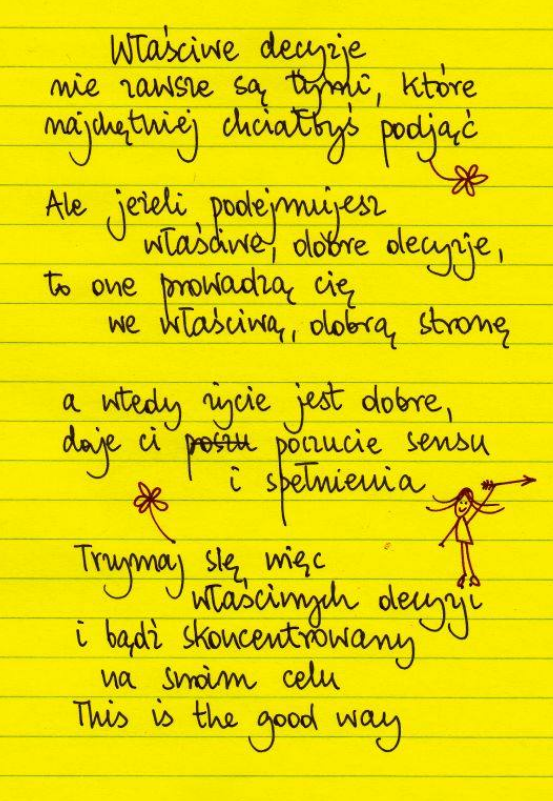 Właściwe decyzje
nie zawsze są tymi, które
najchętniej chciałbyś podjąć
Ale jeżeli podejmujesz
właściwe, dobre decyzje,
to one prowadzą cię
we właściwą, dobrą stronę
a wtedy życie jest dobre,
daje ci poszu poczucie sensu
i spełnienia
Trzymaj się więc
właściwych decyzji
i bądź skoncentrowany
na swoim celu
This is the good way